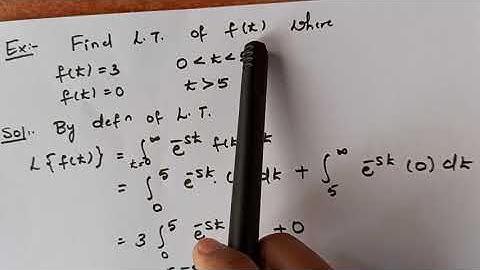 Ex:- Find L.T. of f(t) where
f(t) = 3 0 < t <
f(t) = 0 t > 5
Sol:. By defn of L.T.
L{f(t)} = ∫_{t=0}^{∞} e^{-st} f(t)
= ∫_0^5 e^{-st} . dt + ∫_5^∞ e^{-st} (0) dt
= 3 ∫_0^5 e^{-st} + 0